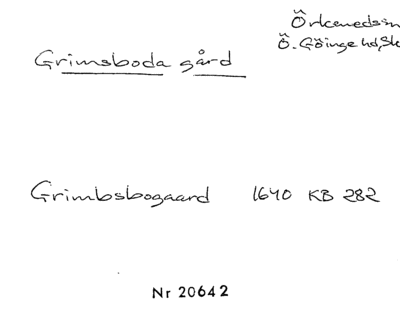 Örkenedssn
Ö. Göinge hd, Sk
Grimsboda gård
Grimbsbogaard 1640 KB 282
Nr 20642